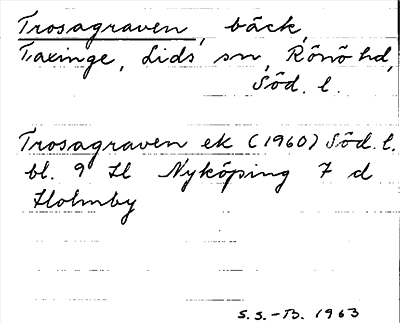 Trosagraven, bäck,
Taxinge, Lids sn, Rönö hd,
Söd. l.
Trosagraven ek (1960) Söd. l.
bl. 9 H Nyköping 7 d
Holmby
S.S.-B. 1963